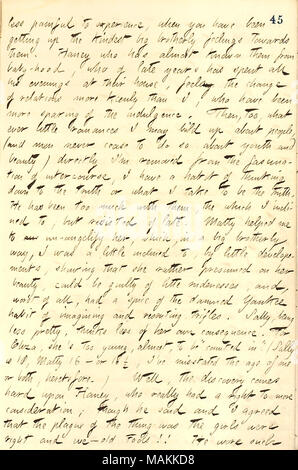 45
less painful to experience, when you have been
getting up the kindest big brotherly feelings towards
them. Haney who has almost known them from
baby-hood, who of late years has spent all
his evenings at their house, feels the change
of relations more keenly than I who have been
more sparing of the indulgence. Then, too, what
ever little romances I may build up about people,
(and men never cease to do so about youth and
beauty) directly I'm removed from the fascina-
tion of intercourse, I have a habit of thinking
down to the truth or what I take to be the truth.
He has been too much with them, the which I incli-
ned to, but resisted, of late. Matty helped me
to un-angelify her, which, in a big brotherly
way, I was a little inclined to, by little develope-
ments, shewing that she rather presumed on her
beauty, could be guilty of little rudenesses, and,
worst of all, had a spice of the damned Yankee
habit of imagining and resenting trifles. Sally, being
less pretty, thinks less of her own consequence. For
Eliza, she's too young, almost to be "counted in". (Sally
is 18, Matty 16 — or 18 1/2, I've misstated the age of one
or both, heretofore.) Well, the discovery comes
hard upon Haney, who really had a right to more
consideration; though he said and I agreed
that the plague of the thing was the girls were
right and we — old fools!! He were such
alamy
Image ID: MAKKD8
www.alamy.com